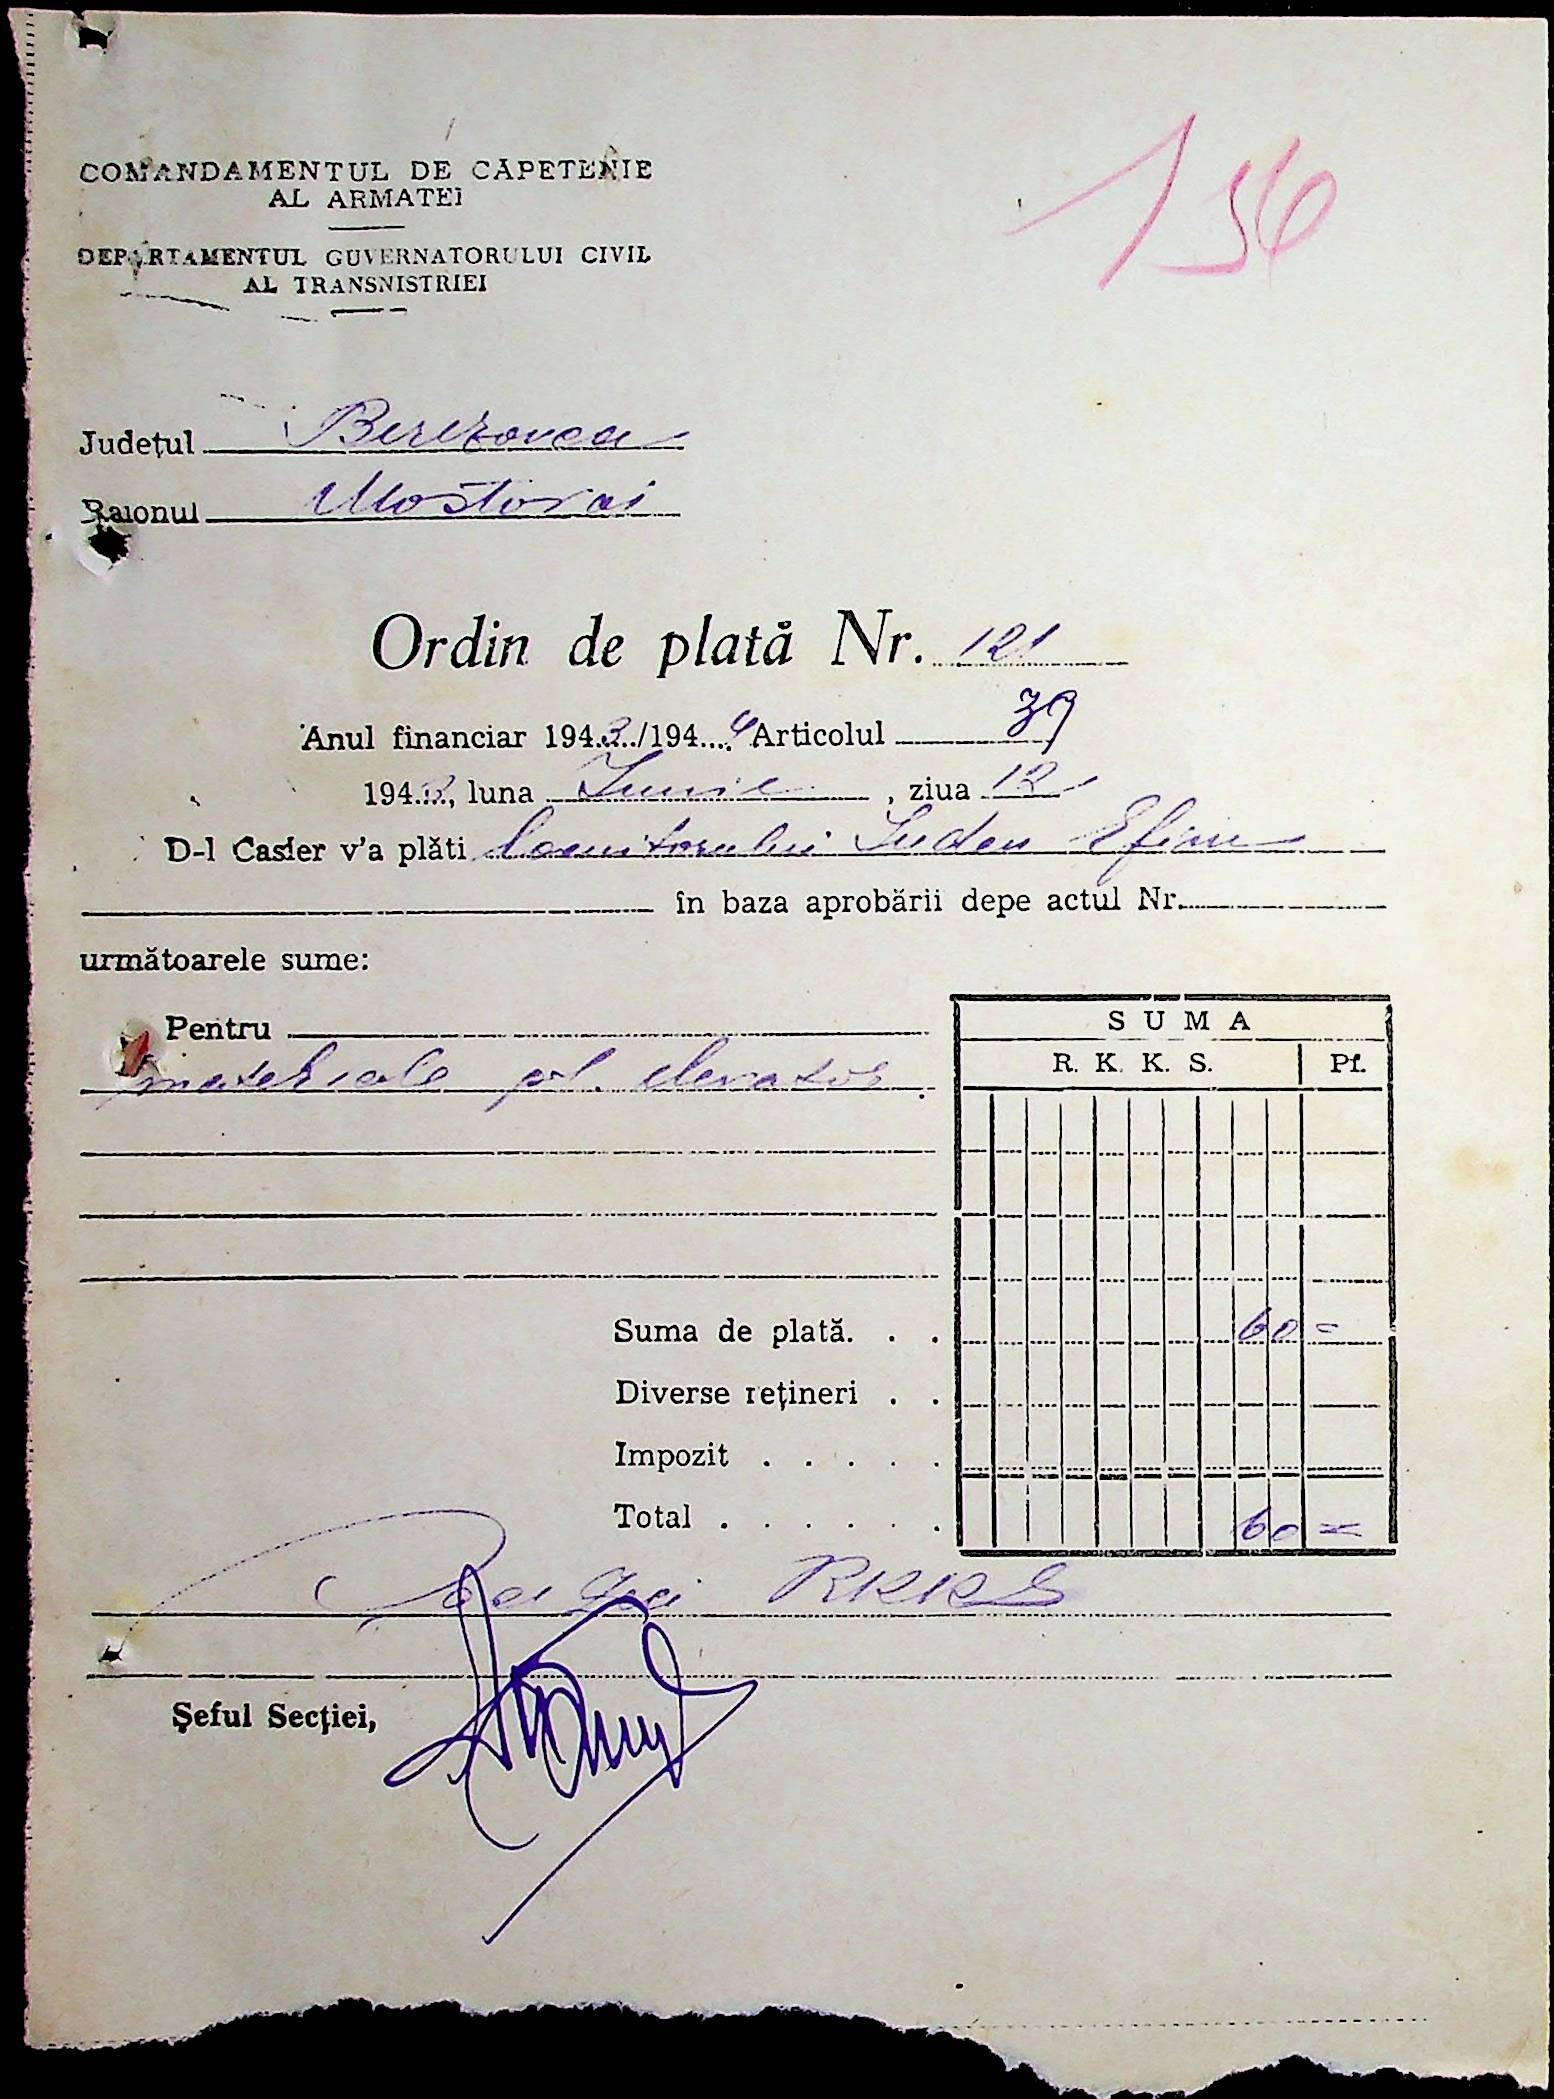 156
COMANDAMENTUL DE CAPETENIE
AL ARMATEI
DEPARTAMENTUL GUVERNATORULUI CIVIL
AL TRANSNISTRIEI
Județul Berezovca
Raionul Mostovoi
Ordin de plată Nr. 121
Anul financiar 1943/1944 Articolul 39
1943, luna Iunie, ziua 12
D-l Casier v'a plăti locuitorului Efim
în baza aprobării depe actul Nr.
următoarele sume:
Pentru
materiale pt. elevator
SUMA
R. K. K. S. Pf.
Suma de plată. . . 60 =
Diverse rețineri . .
Impozit . . . . .
Total . . . . . . 60 =
RKKS
Șeful Secției,